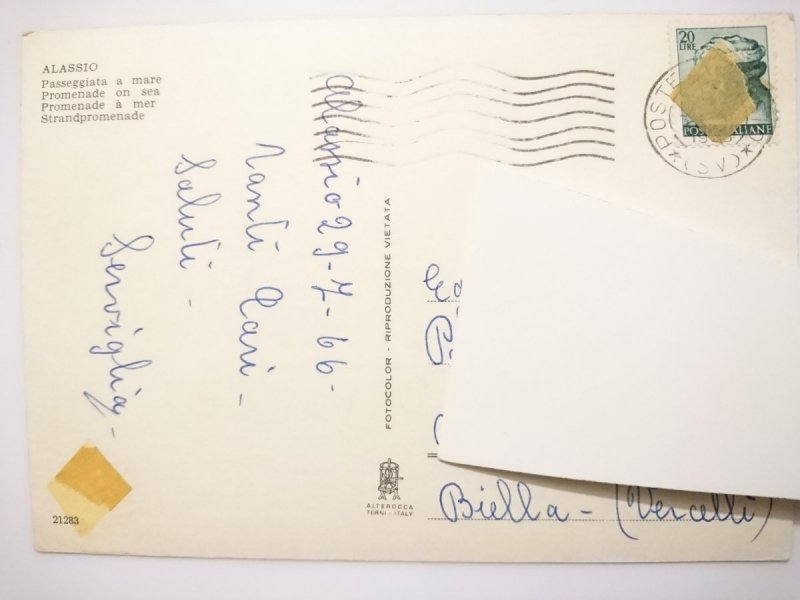 ALASSIO
Passeggiata a mare
Promenade on sea
Promenade à mer
Strandpromenade
Alassio 29-7-66-
Tanti Cari -
Saluti -
21283
FOTOCOLOR - RIPRODUZIONE VIETATA
ALTEROCCA
TERNI - ITALY
20
LIRE
POSTE ITALIANE
POSTE
(SV)
Biella - (Vercelli)